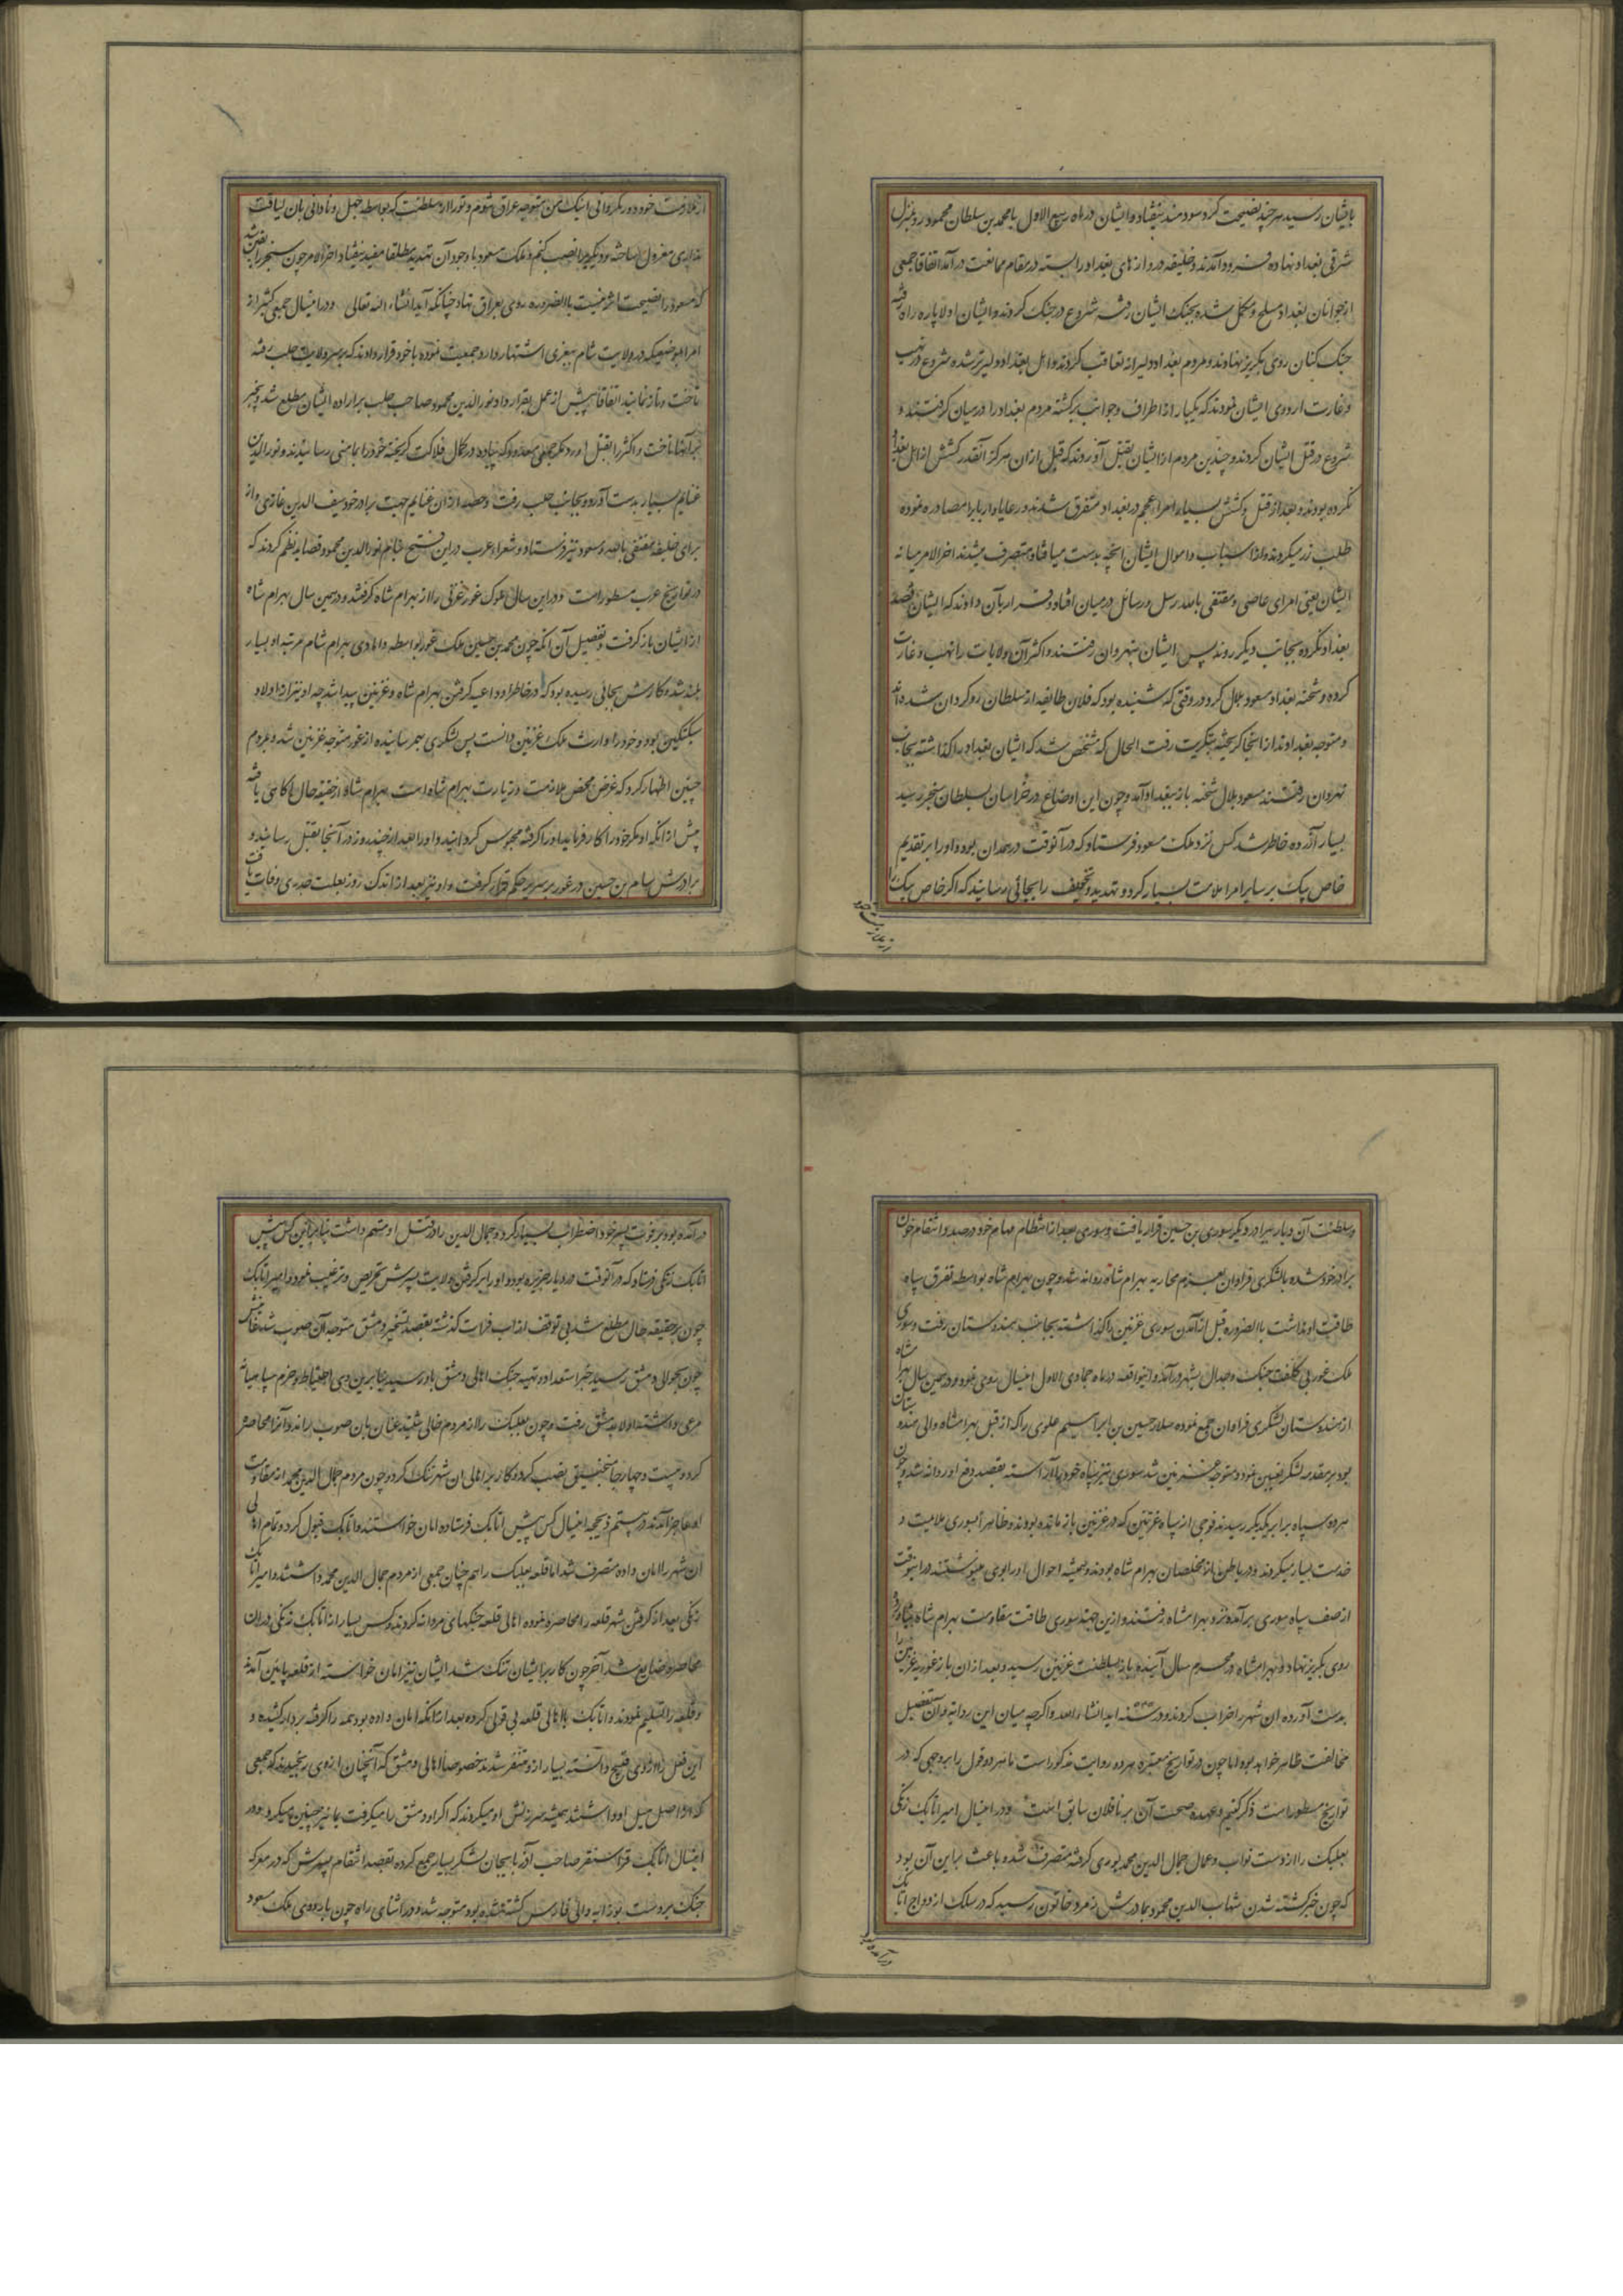 بایشان رسید هر چند نصیحت کرد سودمند نیفتاد و ایشان در ماه ربیع الاول با محمد بن سلطان محمود روز بمنزل
شرقی بغداد نهاده فرود آمدند و خلیفه دروازهای بغداد را بسته در مقام ممانعت درآمد اتفاقا جمعی
از جوانان بغداد مسلح و مکمل شده بجنک ایشان رفته شروع در جنک کردند و ایشان اولا پاره راه رفته
جنک کنان روی بکریز نهادند و مردم بغداد دلیرانه تعاقب کردند و اهل بغداد دلیرتر شده شروع در نهب
و غارت اردوی ایشان نمودند که یکبار از اطراف و جوانب برکشته مردم بغداد را در میان کرفتند و
شروع در قتل ایشان کردند و چندین مردم از ایشان بقتل آوردند که قبل ازان هرکز آنقدر کشش از اهل بغداد
نکرده بودند و بعد از قتل و کشش بسیار امراء عجم در بغداد متفرق شدند و رعایا و برایا را مصادره نموده
طلب زر میکردند و از اسباب و اموال ایشان آنچه بدست میافتاد متصرف میشدند اخر الامر میانه
ایشان یعنی امرای عاصی و مقتفی بالله رسل و رسائل در میان افتاد و قرار بآن دادند که ایشان قصد
بغداد نکرده بجانب دیکر روند پس ایشان بنهروان رفتند و اکثر آن ولایات را نهب و غارت
کرده و شحنه بغداد مسعود بلال کرد در وقتی که شنیده بود که فلان طایفه از سلطان روکردان شده اند
و متوجه بغداد اند از انجا کریخته بتکریت رفت الحال که مشخص شد که ایشان بغداد را کذاشته بجانب
نهروان رفتند مسعود بلال شحنه باز ببغداد آمد و چون این اوضاع در خراسان بسلطان سنجر رسید
بسیار آزرده خاطر شد کس نزد ملک مسعود فرستاد که در آنوقت در همدان بود و او را بر تقدیم
خاص بیک بر سایر امرا ملامت بسیار کرد و تهدید و تخفیف را بجائی رسانید که اکر خاص بیک را
از ملازمت خود دور نکردانی اینک من متوجه عراق میشوم و تو را از سلطنت که بواسطه جهل و نادانی بان لیاقت
نداری معزول ساخته و دیکریرا نصب کنم و ملک مسعود با وجود آن تهدید مطلقا مفید نیفتاد اخر الامر چون سنجر را یقین شد
که مسعود را نصیحت اثر نیست بالضروره روی بعراق نهاد چنانکه آید انشاء الله تعالی و درین سال جمعی کثیر از
تاخت و تاز نمایند اتفاقا پیش از عمل بقرارداد نورالدین محمود صاحب حلب بر اراده ایشان مطلع شد و بیخبر
بر آنها تاخت و اکثر را بقتل آورد مکر جمعی معدود که پیاده در کمال فلاکت کریخته خود را بمامنی رسانیدند و نورالدین
غنایم بسیار بدست آورد و بجانب حلب رفت و حصه ازان غنایم جهت برادر خود سیف الدین غازی و از
برای خلیفه مقتفی بالله و مسعود نیز فرستاد و شعراء عرب در این فتح بنام نورالدین محمود قصاید نظم کردند که
در تواریخ عرب مسطور است و در این سال ملوک غور غزنی را از بهرام شاه کرفتند و در همین سال بهرام شاه
از ایشان باز کرفت و تفصیل آن آنکه چون محمد بن حسین ملک غور بواسطه دامادی بهرام شاه مرتبه او بسیار
بلند شد و کارش بجائی رسیده بود که در خاطر او داعیه کرفتن بهرام شاه و غزنین پیدا شد چه او نیز از اولاد
سبکتکین بود و خود را وارث ملک غزنین دانست پس لشکری بهم رسانیده از غور متوجه غزنین شد و بمردم
چنین اظهار کرد که غرض محض ملازمت و زیارت بهرام شاه است بهرام شاه از حقیقه حال اکاهی یافته
پیش از آنکه او مکر خود را کار فرماید او را کرفته محبوس کردانید و او را بعد از چند روز در آنجا بقتل رسانید و
برادرش سام بن حسین در غور بر سریر حکم قرار کرفت و او نیز بعد از اندک روز بعلت جدری وفات یافت
و سلطنت آن دیار ببرادر دیکر سوری بن حسین قرار یافت و سوری بعد از انتظام مهام خود در صدد انتقام خون
برادر خود شده بالشکری فراوان بعزم محاربه بهرام شاه روانه شد و چون بهرام شاه بواسطه تفرق سپاه
طاقت او نداشت بالضروره قبل از آمدن سوری غزنین را کذاشته بجانب هندوستان رفت و سوری
ملک غور بی کلفت جنک و جدال بشهر درآمد و اینواقعه در ماه جمادی الاول اینسال روی نمود و در همین سال بهرام شاه
از هندوستان لشکری فراوان جمع نموده سالار حسین بن ابراهیم علوی را که از قبل بهرامشاه والی هندوستان
بود بر مقدمه لشکر تعیین نمود و متوجه غزنین شد سوری نیز سپاه خود را آراسته بقصد دفع او روانه شد و چون
هر دو سپاه برابر یکدیکر رسیدند فوجی از سپاه غزنین که در غزنین باز مانده بودند و ظاهرا بسوری ملایمت و
خدمت بسیار میکردند و در باطن از مخلصان بهرام شاه بودند و همیشه احوال او را بوی مینوشتند در اینوقت
از صف سپاه سوری برآمده نزد بهرامشاه رفتند و ازین جهت سوری طاقت مقاومت بهرام شاه نیاورده
روی بکریز نهاد و بهرامشاه در محرم سال آینده باز بسلطنت غزنین رسید و بعد ازان باز غوریه غزنین را
بدست آورده ان شهر را خراب کردند و در سنه اید انشاء الله و اکرچه میان این روایه و آن تفصیل
مخالفت ظاهر خواهد بود اما چون در تواریخ معتبره هر دو روایت مذکور است ما هر دو قول را بروجهی که در
تواریخ مسطور است ذکر کنیم و عهده صحت آن بر ناقلان سابق است و در اینسال امیر اتابک زنکی
بعلبک را از دست نواب و عمال جمال الدین محمد بوری کرفته متصرف شد و باعث براین آن بود
که چون خبر کشته شدن شهاب الدین محمود بمادرش زمرد خاتون رسید که در سلک ازدواج اتابک
درآمده بود بر فوت پسر خود اضطراب بسیار کرد و جمال الدین را در قتل او متهم داشت بنابراین کس پیش
اتابک زنکی فرستاد که در آنوقت در دیار جزیره بود و او را بر کرفتن ولایت پسرش تحریص و ترغیب نمود و امیر اتابک
چون بر حقیقه حال مطلع شد بی توقف از اب فرات کذشته بقصد تسخیر دمشق متوجه آن صوب شد
چون بحوالی دمشق رسید خبر استعداد و تهیه جنک اهالی دمشق باو رسید بنابرین وی احتیاط و حزم سپاهیانه
مرعی داشته اولا بدمشق نرفت و چون بعلبک را از مردم خالی شنید عنان بان صوب براند و آنرا محاصره
کرد و بیست و چهار جا منجنیق نصب کرد و کار بر اهالی ان شهر تنک کرد و چون مردم جمال الدین محمد از مقاومت
او عاجز آمدند در بیستم ذیحجه اینسال کس پیش اتابک فرستاده امان خواستند و اتابک قبول کرد و تمام اهالی
ان شهر را امان داده متصرف شد اما قلعه بعلبک را هم چنان جمعی از مردم جمال الدین محمد داشتند و امیر اتابک
زنکی بعد از کرفتن شهر قلعه را محاصره نموده اهالی قلعه جنکهای مردانه کردند و کس بسیار از اتابک زنکی در ان
محاصره ضایع شد آخر چون کار بر ایشان تنک شد ایشان نیز امان خواسته از قلعه پایین آمدند
و قلعه را تسلیم نمودند و اتابک با اهالی قلعه بی قولی کرده بعد از آنکه امان داده بود همه را کرفته بر دار کشیده و
این فعل را از وی قبیح دانسته بسیار ازو متنفر شدند خصوصا اهالی دمشق که آنچنان از وی رنجیدند که جمعی
که در اصل میل او داشتند همیشه سرزنش او میکردند که اکر او دمشق را میکرفت بما نیز چنین میکرد و در
اینسال اتابک قراسنقر صاحب آذربایجان لشکر بسیار جمع کرده بقصد انتقام پسرش که در معرکه
جنک بردست بوزابه والی فارس کشته شده بود متوجه شد و در اثنای راه چون باردوی ملک مسعود